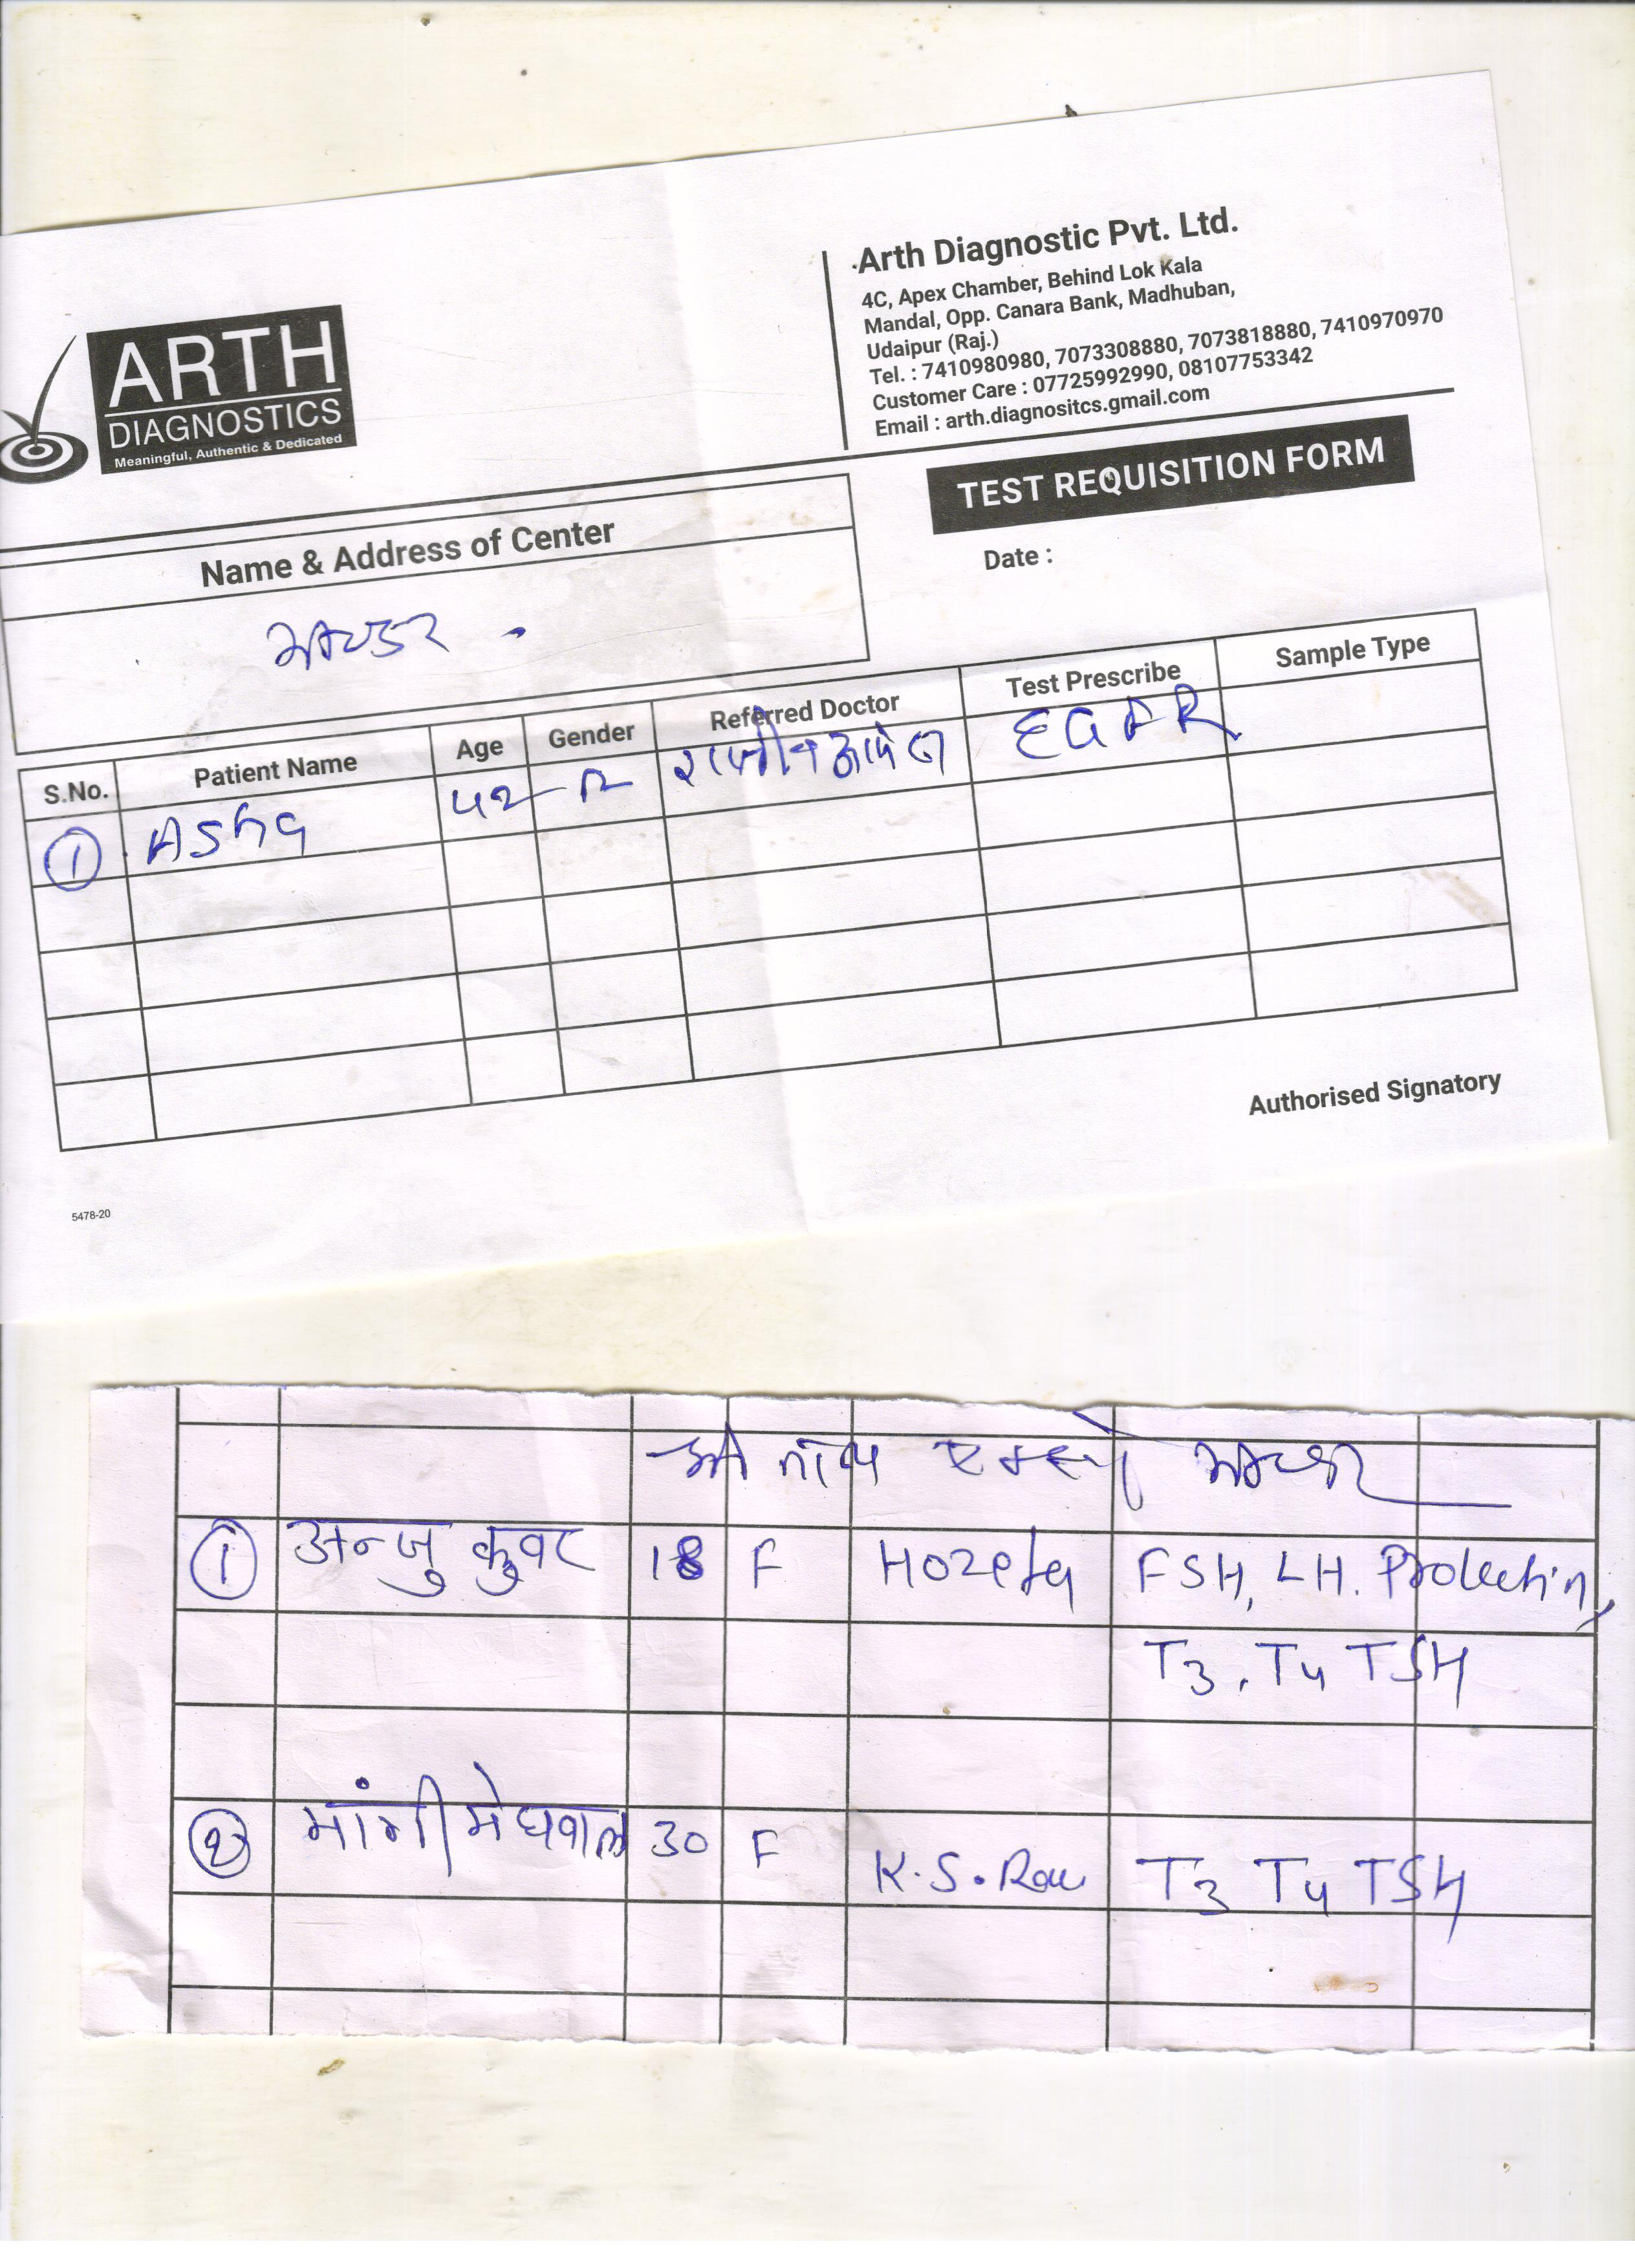 ARTH
DIAGNOSTICS
Meaningful, Authentic & Dedicated
Arth Diagnostic Pvt. Ltd.
4C, Apex Chamber, Behind Lok Kala
Mandal, Opp. Canara Bank, Madhuban,
Udaipur (Raj.)
Tel. : 7410980980, 7073308880, 7073818880, 7410970970
Customer Care : 07725992990, 08107753342
Email : arth.diagnositcs.gmail.com
TEST REQUISITION FORM
Name & Address of Center
Date :
भीण्डर
S.No. Patient Name Age Gender Referred Doctor Test Prescribe Sample Type
1 Asha 42 EGFR
Authorised Signatory
5478-20
भीण्डर
1 अन्जु कुवर 18 F Hozefa FSH, LH. Prolectin,
T3, T4 TSH
2 मांगी मेघवाल 30 F K.S. Rau T3 T4 TSH